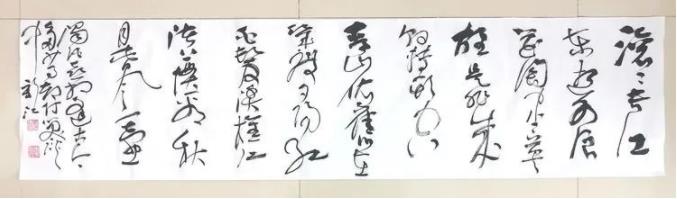 滚滚长江
东逝水浪
花淘尽英
雄是非成
败转头空
青山依旧在
几度夕阳红
白发渔樵江
渚上惯看秋
月春风一壶
浊酒喜相逢古今
多少事都付笑谈
中